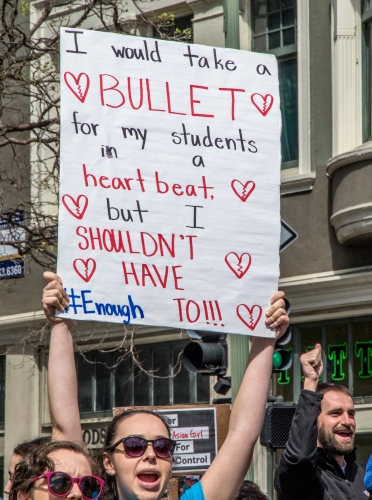 I would take a
BULLET
for my students
in a
heart beat,
but I
SHOULDN'T
HAVE
#Enough TO!!!
Asian Girl
For
Control